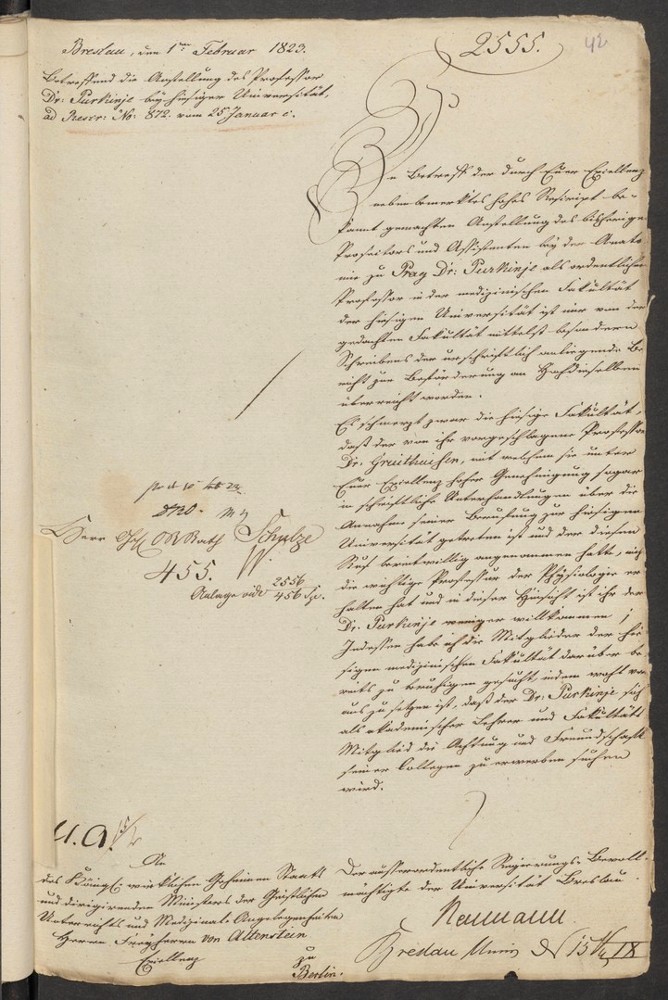 2555.
42
Breslau, den 1ten Februar 1823.
Betreffend die Anstellung des Professor
Dr: Purkinje bey hiesiger Universität,
ad Rescr: No: 872. vom 25 Januar c.
In Betreff der durch Euer Excellenz
nebenbemerktes hohes Rescript be-
kannt gemachten Anstellung des bisherigen
Prosectors und Assistenten bey der Anato-
mie zu Prag Dr: Purkinje als ordentlicher
Professor in der medizinischen Fakultät
der hiesigen Universität ist mir von der
gedachten Fakultät mittelst besonderen
Schreibens der urschriftlich anliegende Be-
richt zur Beförderung an Hochdieselben
überreicht worden.
Es schmerzt zwar die hiesige Fakultät,
daß der von ihr vorgeschlagene Professor
Dr. Gruithuisen, mit welchem sie unter
Euer Excellenz hoher Genehmigung sogar
in schriftliche Unterhandlungen über die
Annahme seiner Berufung zur hiesigen
Universität getreten ist und der diesen
Ruf bereitwillig angenommen hatte, nicht
die wichtige Professur der Physiologie er-
halten hat und in dieser Hinsicht ist ihr der
Dr. Purkinje weniger willkommen;
Indessen habe ich die Mitglieder der hie-
sigen medizinischen Fakultät darüber be-
reits zu beruhigen gesucht, indem wohl vor-
aus zu setzen ist, daß der Dr: Purkinje sich
als akademischer Lehrer und Fakultäts
Mitglied die Achtung und Freundschaft
seiner Collegen zu erwerben suchen
wird.
Herr Geh OR Rath Schulze
455.
Anlage vide 2556
456
U.A.
An
des Königl. wirklichen Geheimen Staats
und dirigirenden Ministers der Geistlichen
Unterrichts und Medizinal-Angelegenheiten
Herrn Freyherrn von Altenstein
Excellenz
zu
Berlin.
Der außerordentliche Regierungs-Bevoll-
mächtigte der Universität Breslau.
Neumann
Breslau Univ